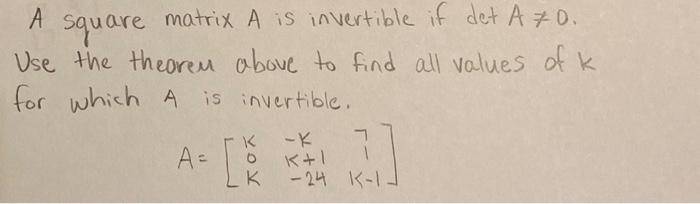 A square matrix A is invertible if det A ≠ 0.
Use the theorem above to find all values of k
for which A is invertible.
A = [ K -K 7
0 K+1 1
K -24 K-1 ]